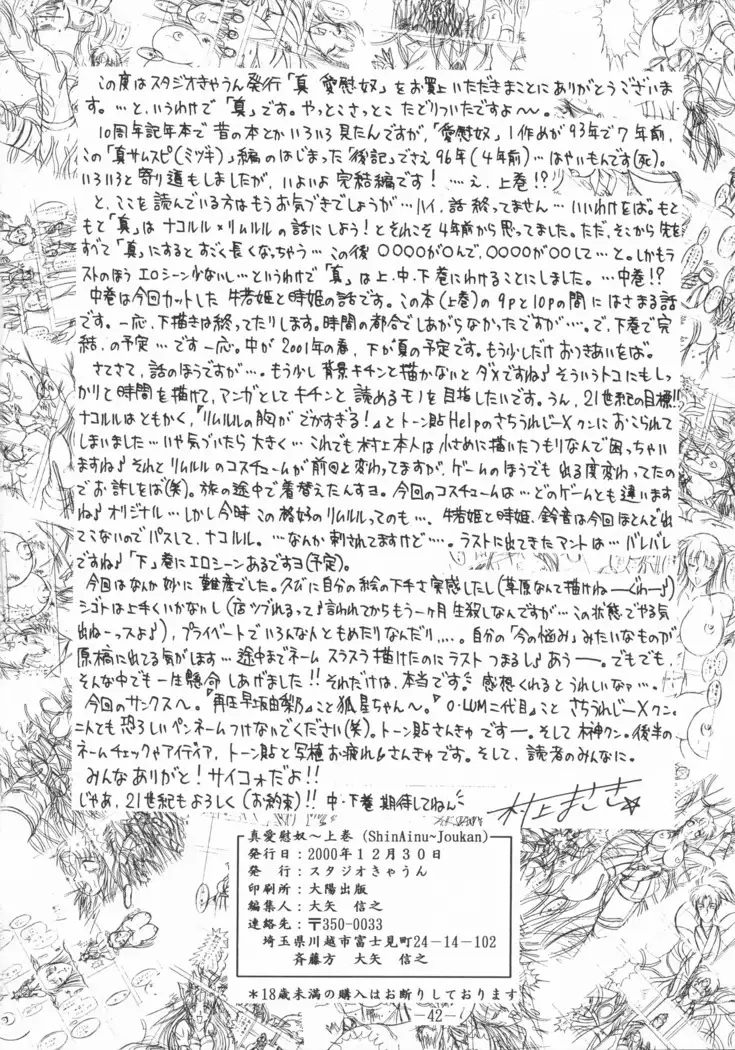 この度はスタジオきゃうん発行「真 愛慰奴」をお買上いただきまことにありがとうございま
す。…と、いうわけで「真」です。やっとこさっとこ たどりついたですよ〜〜。
10周年記年本で昔の本とかいろいろ見たんですが、「愛慰奴」1作めが93年で7年前、
この「真サムスピ(ミヅキ)」編のはじまった「後記」でさえ96年(4年前)…はやいもんです(死)。
いろいろと寄り道もしましたが、いよいよ完結編です! …え、上巻!?
と、ここを読んでいる方はもうお気づきでしょうが…ハイ、話 終ってません…いいわけをば。もと
もと「真」はナコルル×リムルルの話にしよう!とそれこそ4年前から思ってました。ただ、そこから先を
すべて「真」にするとすごく長くなっちゃう…この後〇〇〇〇が〇んで、〇〇〇〇が〇〇して…と。しかもラ
ストのほうエロシーン少ないし…というわけで「真」は上、中、下巻にわけることにしました。…中巻!?
中巻は今回カットした 牛若姫と時姫の話です。この本(上巻)の9pと10pの間にはさまる話
です。一応、下描きは終ってたりします。時間の都合でしあがらなかったですが…。で、下巻で完
結、の予定…です一応。中が2001年の春、下が夏の予定です。もう少しだけおつきあいをば。
さてさて、話のほうですが…。もう少し背景キチンと描かないとダメですね♪そういうトコにもしっ
かりと時間を描けて、マンガとしてキチンと読めるモノを目指したいです。うん、21世紀の目標!!
ナコルルはともかく、『リムルルの胸がでかすぎる!』とトーン貼HelpのさちうれじーXクンにおこられて
しまいました…いや気づいたら大きく…これでも村上本人は小さめに描いたつもりなんで困っちゃい
ますね♪それとリムルルのコスチュームが前回と変わってますが、ゲームのほうでも出る度変わってたの
でお許しをば(笑)。旅の途中で着替えたんすヨ。今回のコスチュームは…どのゲームとも違います
ね♪オリジナル…しかし今時この格好のリムルルってのも…。牛若姫と時姫、鈴音は今回ほとんど出
てこないのでパスして、ナコルル。…なんか刺されてますけど…。ラストに出てきたアントは…バレバレ
ですね!「下」巻にエロシーンあるですヨ(予定)。
今回はなんか妙に難産でした。久びに自分の絵の下手さ実感したし(草原なんて描けねーぐわー♪)
シゴトは上手くいかないし(店ツブれるって♪言われてからもう一ヶ月生殺しなんですが…この状態でやる気
出ねーっスよ♪)、プライベートでいろんな人ともめたりなんだり…。自分の「今の悩み」みたいなものが
原稿に出てる気がします…途中までネーム スラスラ描けたのにラスト つまるし♪あうー。でもでも、
そんな中でも一生懸命しあげました!!それだけは、本当です。感想くれるとうれしいなァ…。
今回のサンクスへ。『再圧早坂由梨乃』こと狐見ちゃんへ。『O・LUM二代目』こと さちうれじーXクン。
二人とも恐ろしいペンネームつけないでください(笑)。トーン貼さんきゅ ですー。そして 榊神クン。後半の
ネームチェックやアイディア、トーン貼と写植お疲れ&さんきゅです。そして、読者のみんなに。
みんなありがと!サイコォだよ!!
じゃあ、21世紀もよろしく(お約束)!! 中・下巻 期待してねん
村上まさき☆
真愛慰奴〜上巻 (ShinAinu~Joukan)
発行日:2000年12月30日
発 行:スタジオきゃうん
印刷所:大陽出版
編集人:大矢 信之
連絡先:〒350-0033
埼玉県川越市富士見町24-14-102
斉藤方 大矢 信之
*18歳未満の購入はお断りしております
-42-